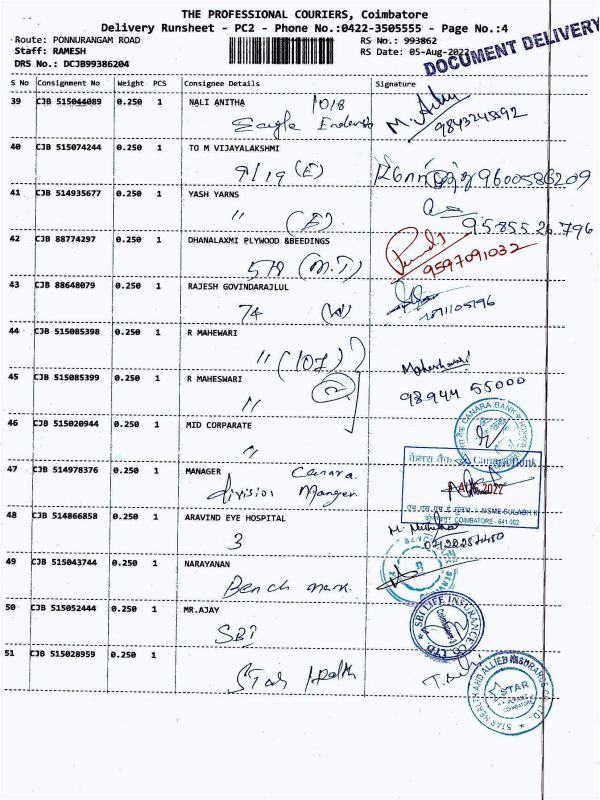 THE PROFESSIONAL COURIERS, Coimbatore
Delivery Runsheet - PC2 - Phone No.:0422-3505555 - Page No.:4
Route: PONNURANGAM ROAD
RS No.: 993862
Staff: RAMESH
RS Date: 05-Aug-2022
DRS No.: DCJB99386204
DOCUMENT DELIVERY
S No Consignment No Weight PCS Consignee Details Signature
39 CJB 515044089 0.250 1 NALI ANITHA 1018
Eagle
9843245892
40 CJB 515074244 0.250 1 TO M VIJAYALAKSHMI
9/19 (E) 9600586209
41 CJB 514935677 0.250 1 YASH YARNS
" (E) 95855 26 796
42 CJB 88774297 0.250 1 DHANALAXMI PLYWOOD &BEEDINGS
578 (M.T) 9597091032
43 CJB 88648079 0.250 1 RAJESH GOVINDARAJLUL
74 (W)
44 CJB 515085398 0.250 1 R MAHEWARI
" (107)
Maheshwari
45 CJB 515085399 0.250 1 R MAHESWARI
" 2 98944 55000
46 CJB 515020944 0.250 1 MID CORPARATE
"
CANARA BANK
47 CJB 514978376 0.250 1 MANAGER Canara
division Manger
केनरा बैंक Canara Bank
2022
COIMBATORE - 641 002
48 CJB 514866858 0.250 1 ARAVIND EYE HOSPITAL
3
49 CJB 515043744 0.250 1 NARAYANAN
Bench mark.
50 CJB 515052444 0.250 1 MR.AJAY
SBI
SBI LIFE INSURANCE CO. LTD
51 CJB 515028959 0.250 1
Star Health
STAR HEALTH AND ALLIED INSURANCE CO. LTD.
STAR
COIMBATORE